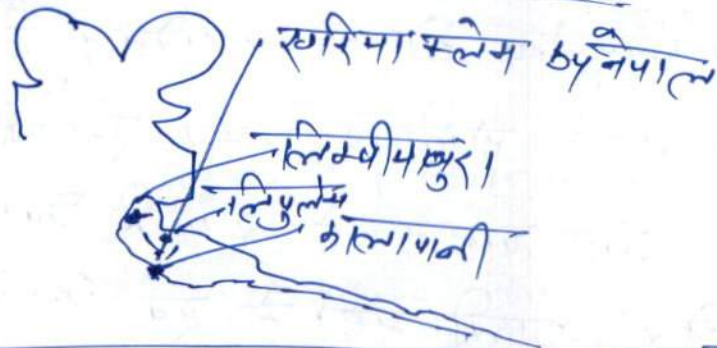 एरिया क्लेम by नेपाल
लिम्पीयाधुरा
लिपुलेख
कालापानी